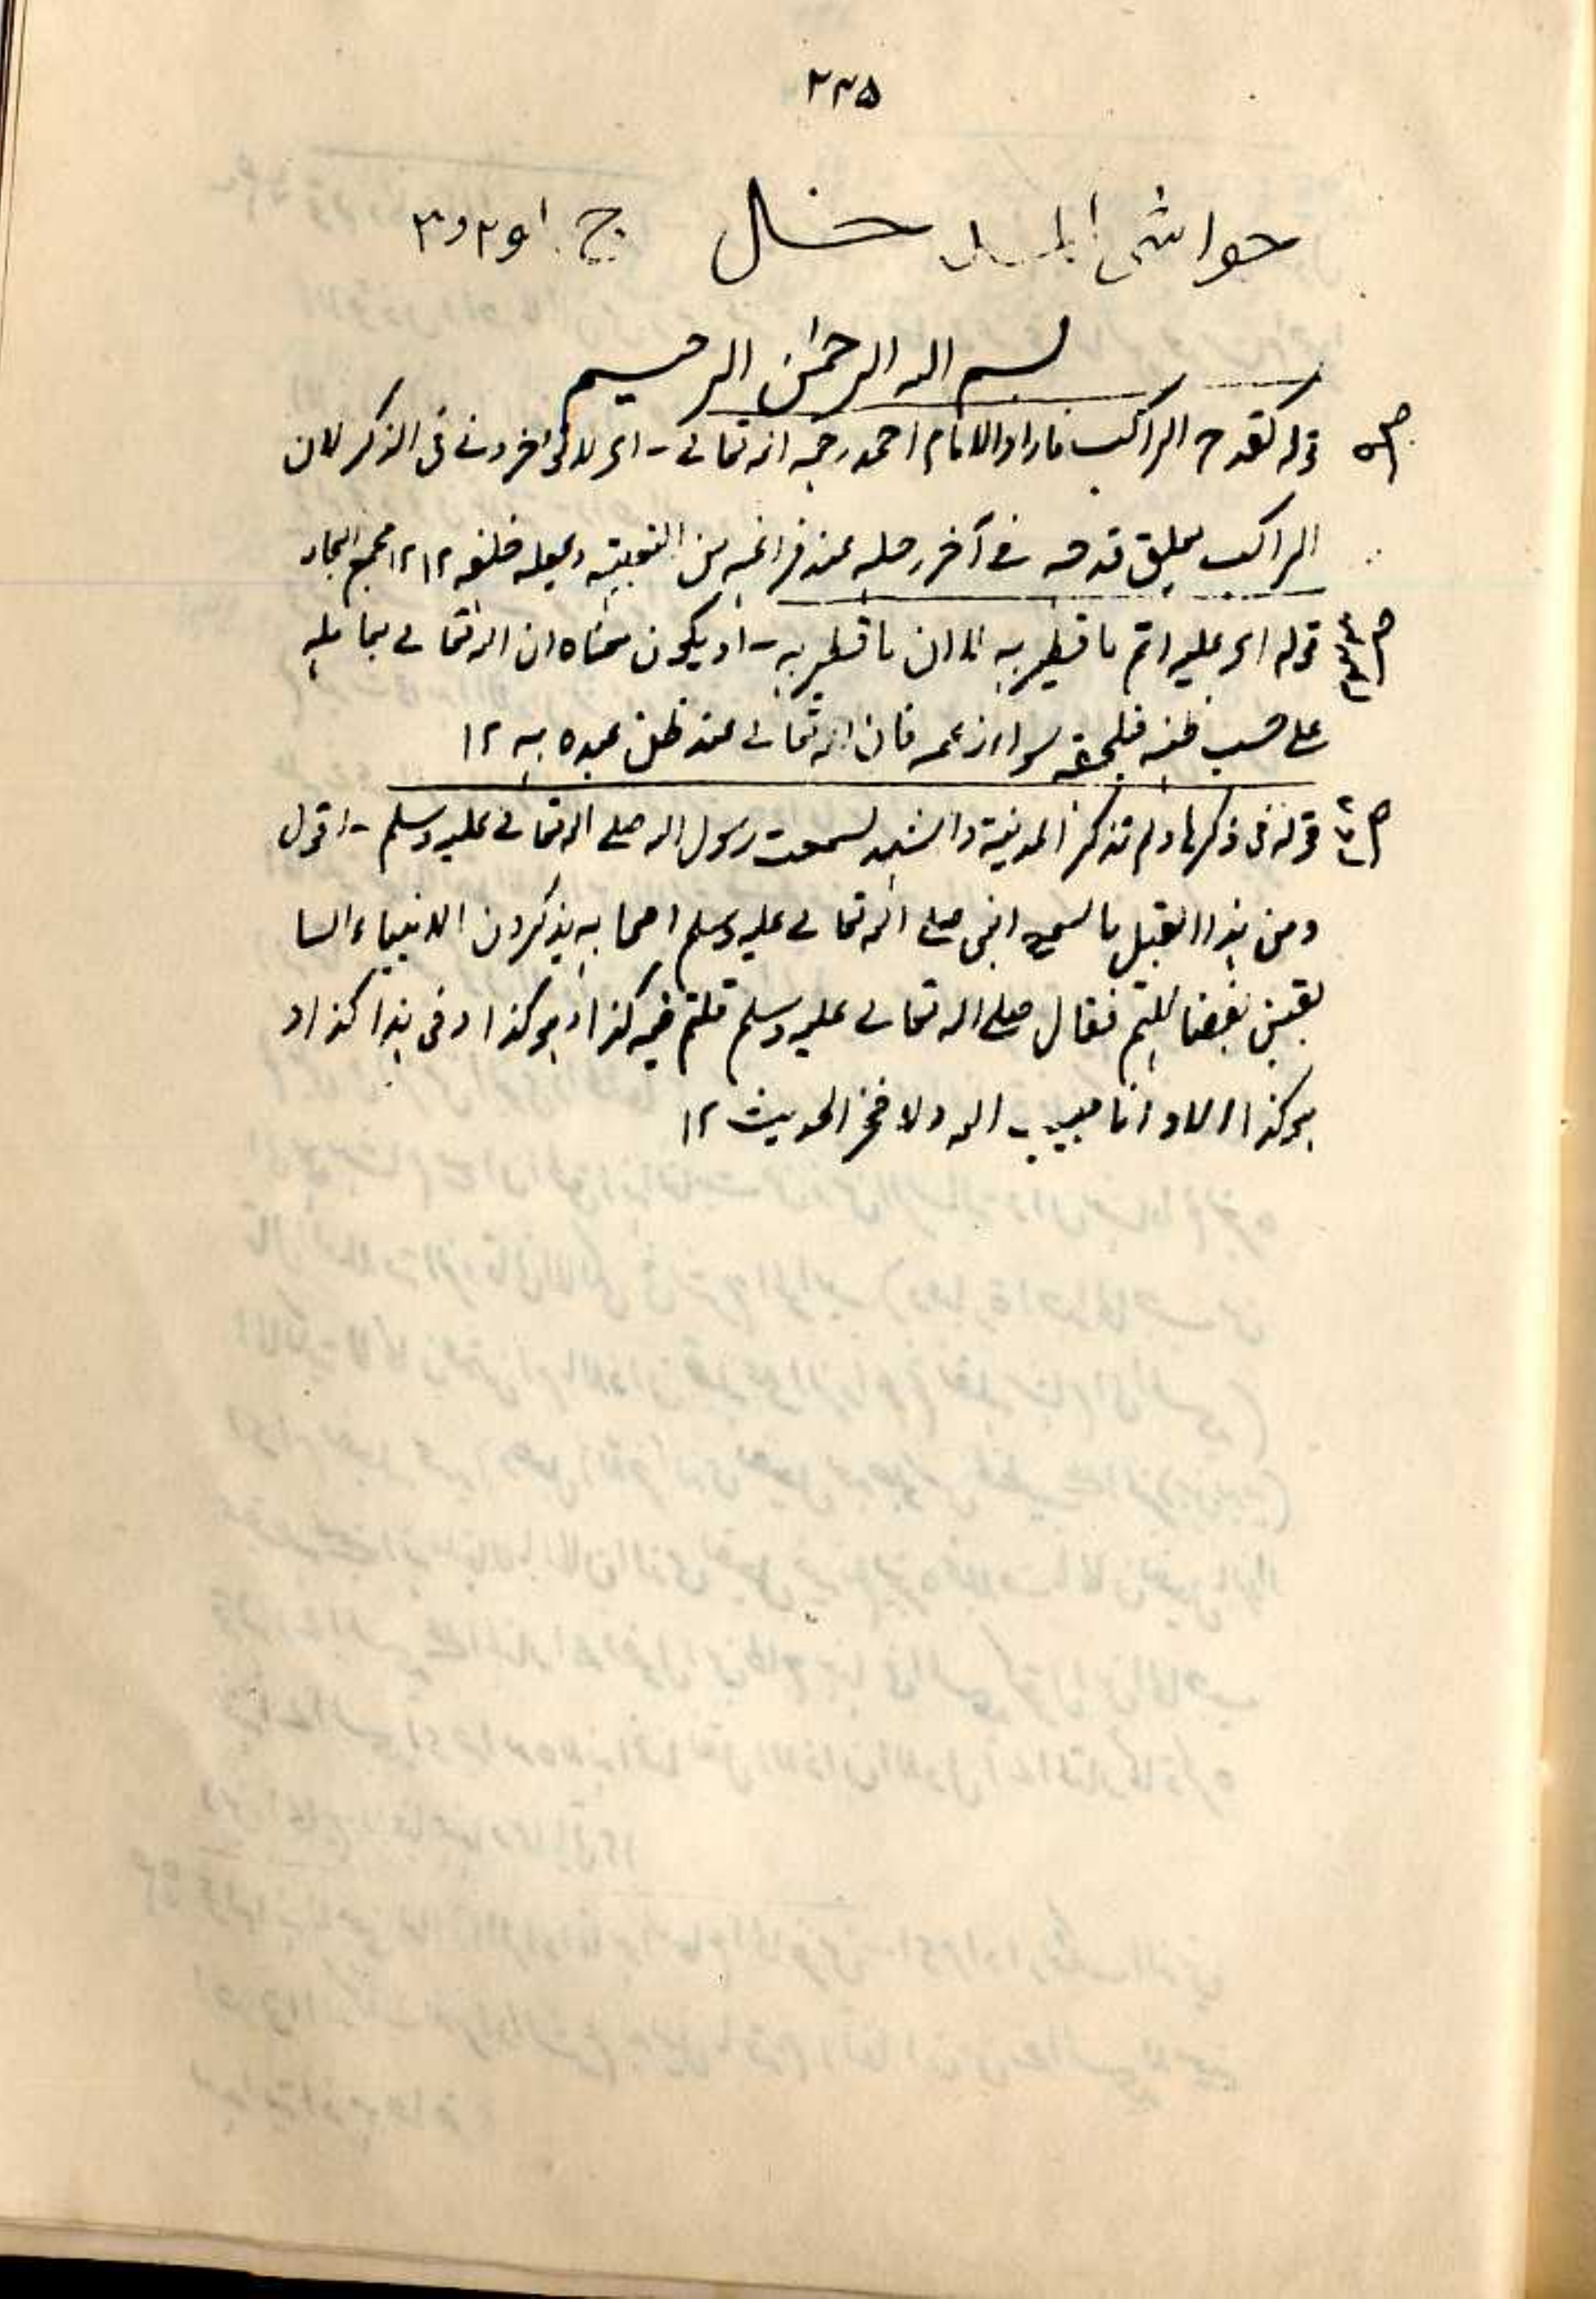 ۲۳۵
حواشی المدخل ج ۱ و ۲ و ۳
بسم الله الرحمٰن الرحيم
ص۵ قوله كقدح الراكب ما رواه الامام احمد رحمه الله تعالى - اى لا تؤخرونى فى الذكر لان
الراكب يعلق قدحه فى آخر رحله عند فراغه من التعبية ويجعله خلفه ۱۲ ۱۲ مجمع البحار
قوله اى عليه اثم ما تطير به ان ما تطير به - او يكون معناه ان الله تعالى يعامله
على حسب ظنه فيلحقه سوء زعمه فان الله تعالى عند ظن عبده به ۱۲
قوله فى ذكرها ولم تذكر المدينة واشهد لسمعت رسول الله صلى الله تعالى عليه وسلم - اقول
ومن هذا القبيل ما سمع النبى صلى الله تعالى عليه وسلم اصحابه يذكرون الانبياء السا
بقين بفضائلهم فقال صلى الله تعالى عليه وسلم قلتم فيه كذا وهو كذا وفى هذا كذا و
هو كذا الا وانا حبيب الله ولا فخر الحديث ۱۲